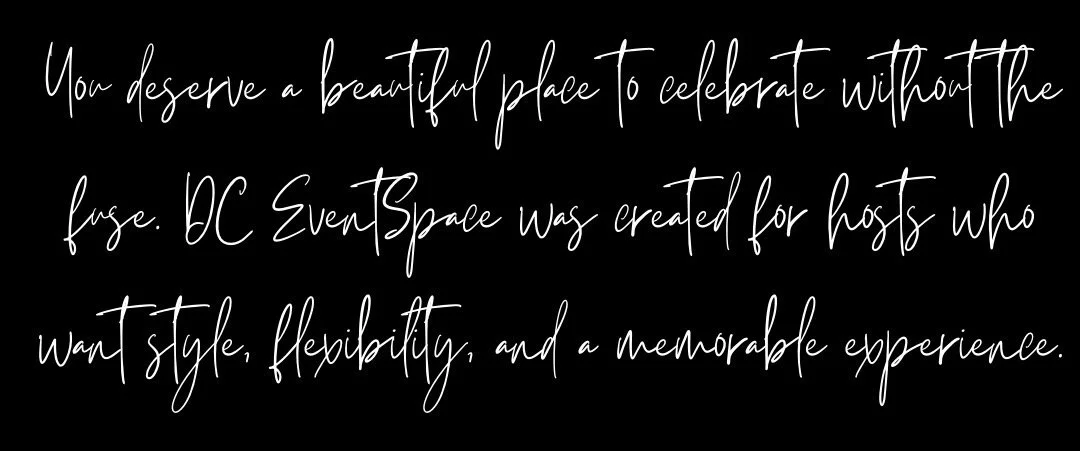 You deserve a beautiful place to celebrate without the
fuse. DC EventSpace was created for hosts who
want style, flexibility, and a memorable experience.